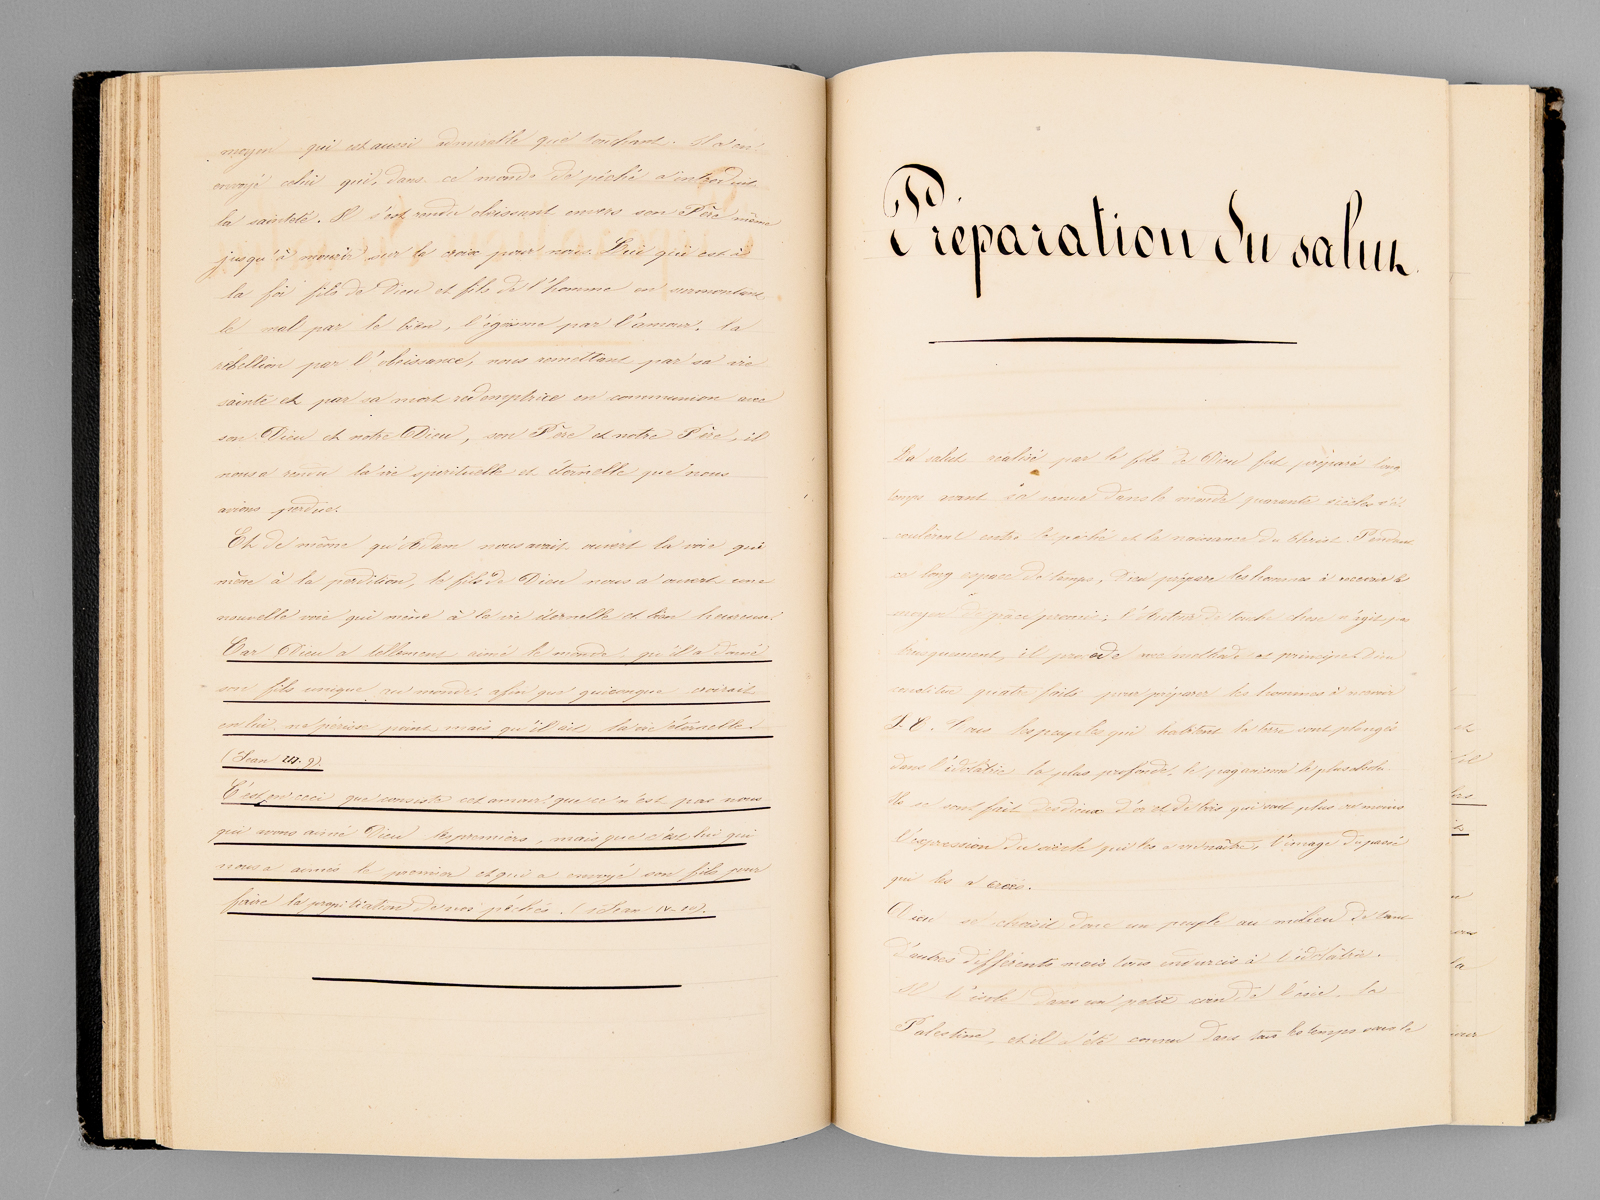 moyen qui est aussi admirable que touchant. Il a en-
envoyé celui qui, dans ce monde de péché a introduit
la sainteté. Il s'est rendu obeissant envers son Père même
jusqu'à mourir sur la croix pour nous. Lui qui est à
la foi fils de Dieu et fils de l'homme en surmontant
le mal par le bien, l'égoisme par l'amour, la
rébellion par l'obeissance, nous remettant par sa vie
sainte et par sa mort rédemptrice en communion avec
son Dieu et notre Dieu, son Père et notre Père, il
nous a rendu la vie spirituelle et éternelle que nous
avions perdue.
Et de même qu'Adam nous avait ouvert la voie qui
mène à la perdition, le fils de Dieu nous a ouvert une
nouvelle voie qui mène à la vie éternelle et bien heureuse.
Car Dieu a tellement aimé le monde qu'il a donné
son fils unique au monde, afin que quiconque croirait
en lui ne périsse point mais qu'il ait la vie éternelle.
(Jean III. 9).
C'est en ceci que consiste cet amour que ce n'est pas nous
qui avons aimé Dieu les premiers, mais que c'est lui qui
nous a aimés le premier et qui a envoyé son fils pour
faire la propitiation de nos péchés. (1 Jean IV. 10).
Préparation du salut
Le salut réalisé par le fils de Dieu fut préparé long
temps avant sa venue dans le monde quarante siècles s'é-
coulèrent entre le péché et la naissance du Christ. Pendant
ce long espace de temps, Dieu prépare les hommes à recevoir le
moyen de grace promis; l'Auteur de toute chose n'agit pas
brusquement, il procède avec méthode et principe. Dieu
constitue quatre faits pour préparer les hommes à recevoir
J. C. Tous les peuples qui habitent la terre sont plongés
dans l'idolâtrie la plus profonde, le paganisme le plus absolu.
Ils se sont fait des dieux d'or et de bois qui sont plus ou moins
l'expression du siècle qui les a vu naître, l'image du passé
qui les a créés.
Dieu se choisit donc un peuple au milieu de tant
d'autres différents mais tous endurcis à l'idolâtrie.
Il l'isole dans un petit coin de l'Asie, la
Palestine, et il a été connu dans tous les temps sous le